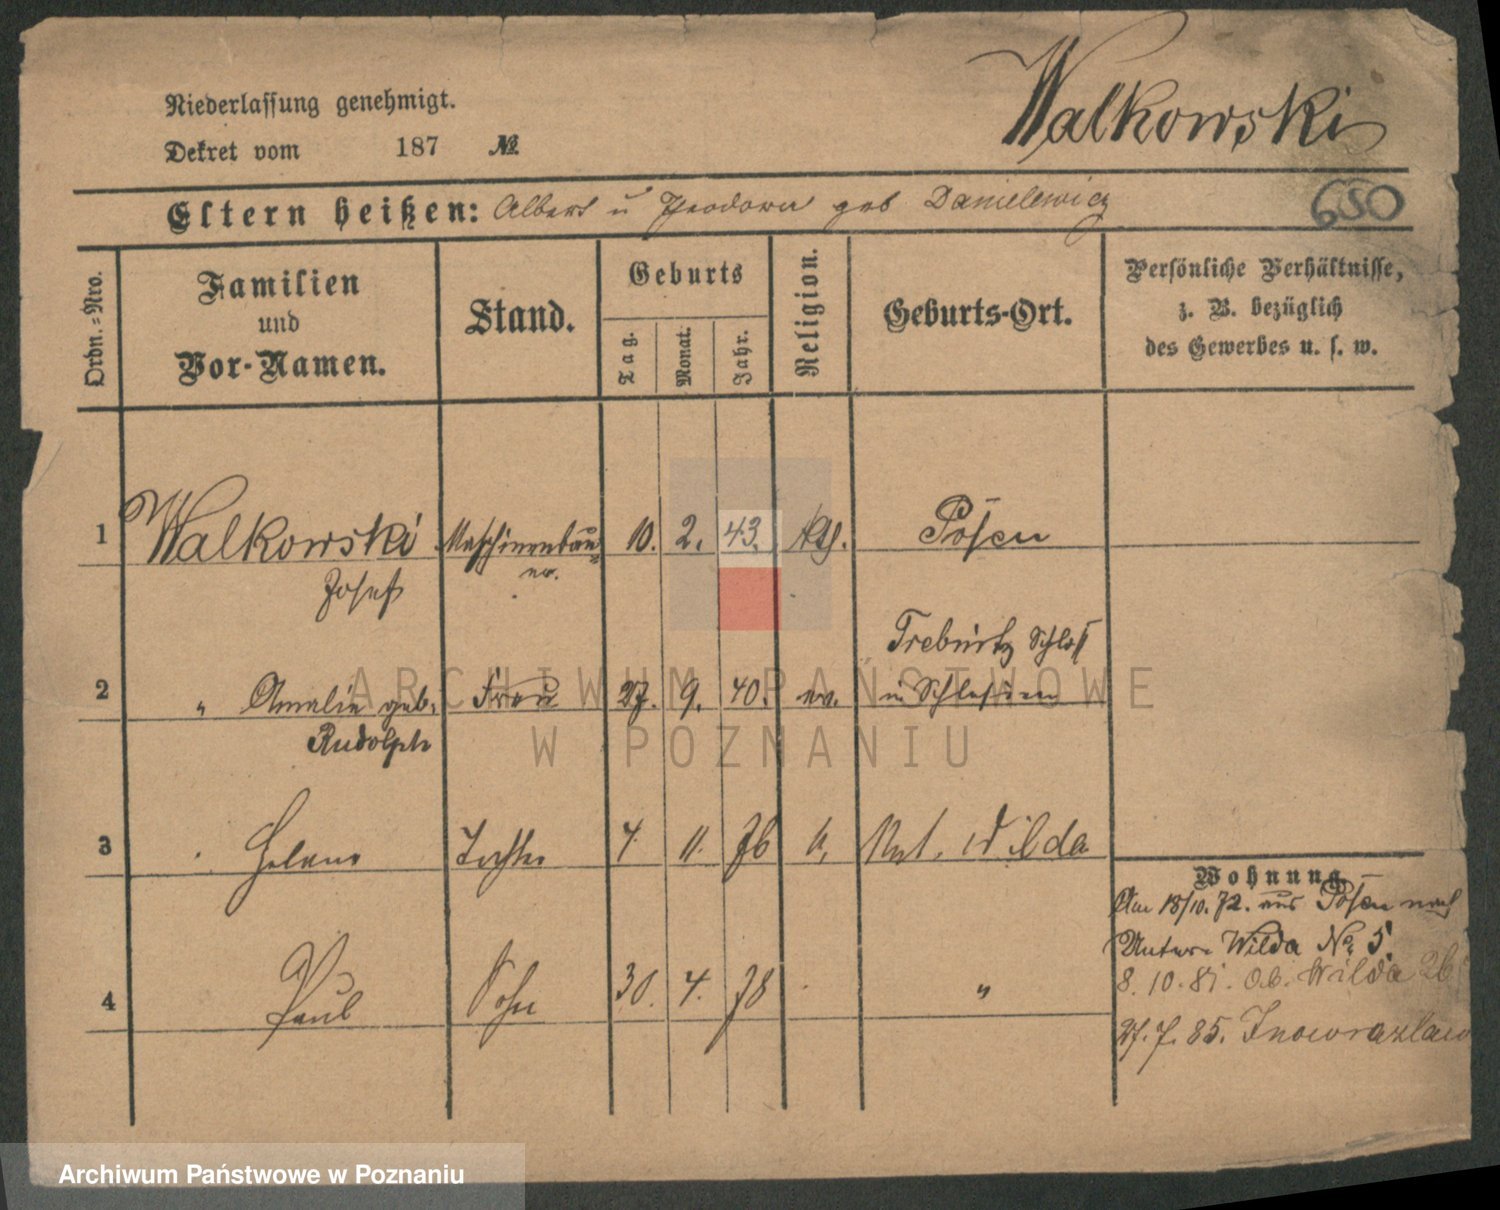 Niederlassung genehmigt.
Dekret vom 187 №
Walkowski
650
Eltern heißen: Albert u Theodora geb Danielewicz
Ordn.=Nro.
Familien
und
Vor-Namen.
Stand.
Geburts
Tag.
Monat.
Jahr.
Religion.
Geburts-Ort.
Persönliche Verhältnisse,
z. B. bezüglich
des Gewerbes u. s. w.
1 Walkowski Maschinenbau= 10. 2. 43. kth. Posen
Josef er.
Trebnitz Schloß
2 " Amalie geb. Frau 27. 9. 40. ev. in Schlesien
Rudolph
3 Helene Tochter 7. 11. 76 k. Unt. Wilda
4 Paul Sohn 30. 4. 78 "
Wohnung
Am 18/10. 72. aus Posen nach
Unter= Wilda No. 5.
8. 10. 81. Ob. Wilda 26
27. 7. 85. Inowrazlaw
ARCHIWUM PAŃSTWOWE
W POZNANIU
Archiwum Państwowe w Poznaniu